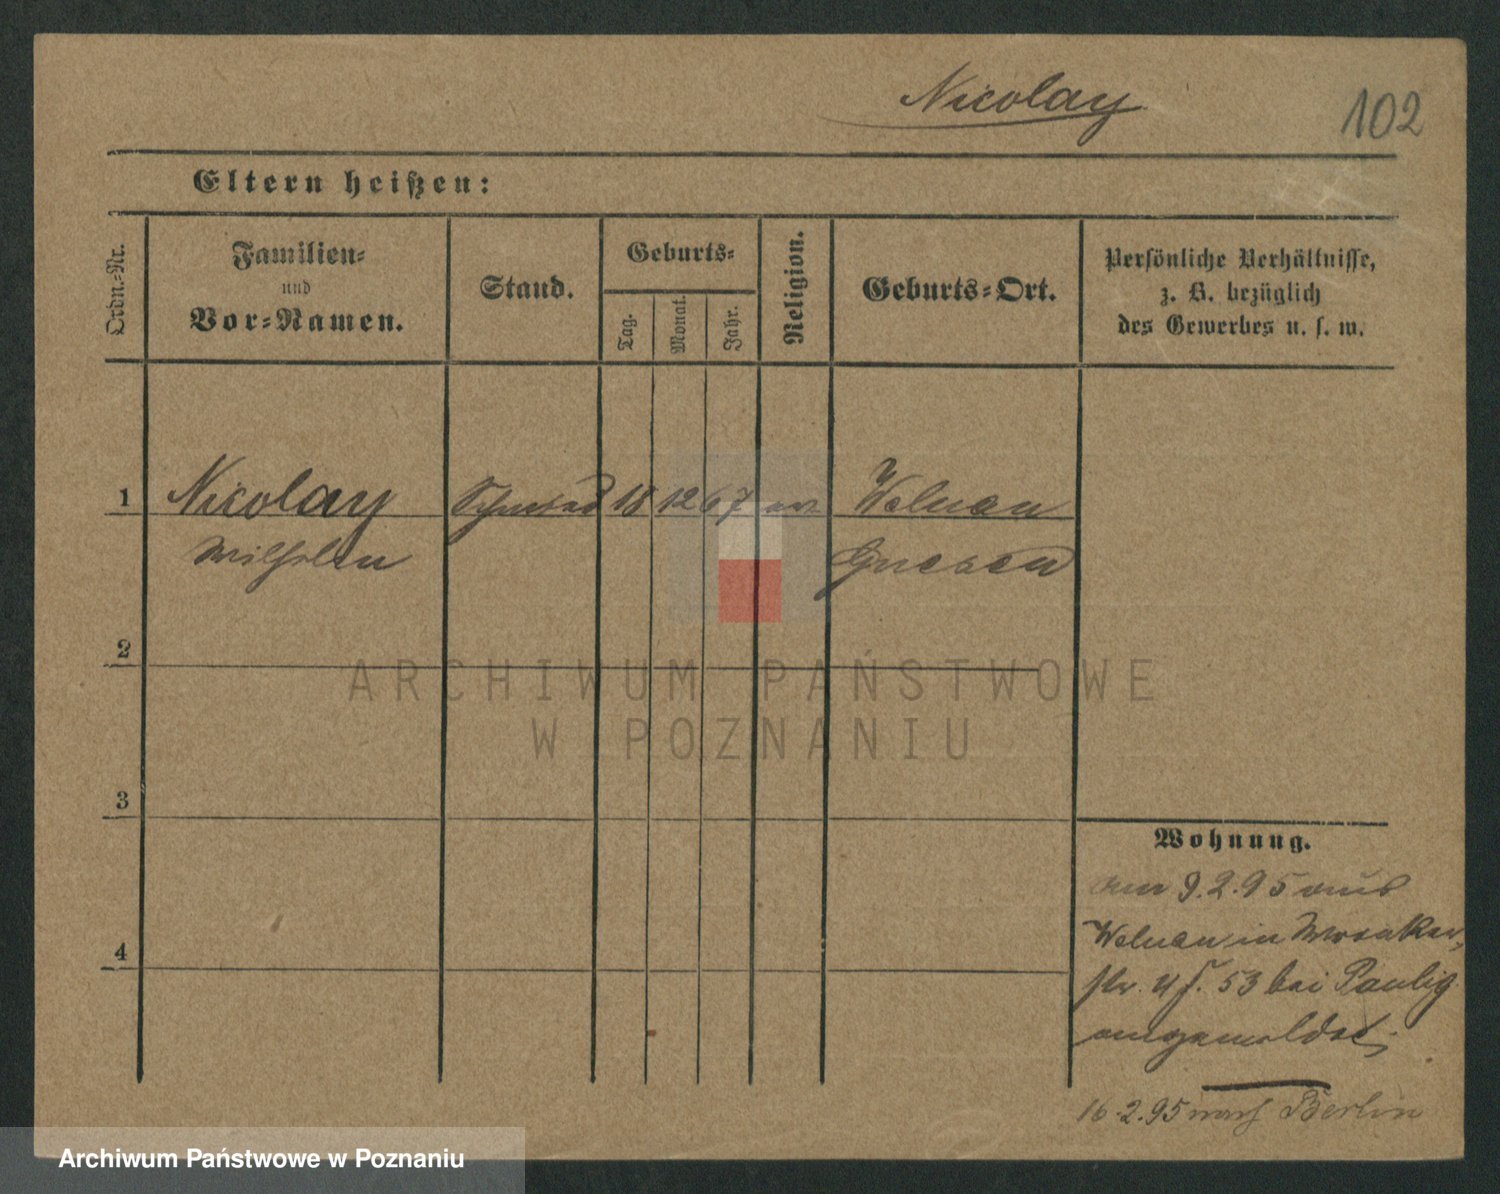 Nicolay
102
Eltern heißen:
Ordn.-Nr.
Familien-
und
Vor-Namen.
Stand.
Geburts-
Tag.
Monat.
Jahr.
Religion.
Geburts-Ort.
Persönliche Verhältnisse,
z. B. bezüglich
des Gewerbes u. s. w.
1 Nicolay 18 12 67 ev Welnau
Wilhelm Gnesen
2
3
4
Wohnung.
am 9.2.95 aus
Welnau in Wronker
str. 4 f. 53 bei Paulig
angemeldet
16.2.95 nach Berlin
ARCHIWUM PAŃSTWOWE
W POZNANIU
Archiwum Państwowe w Poznaniu